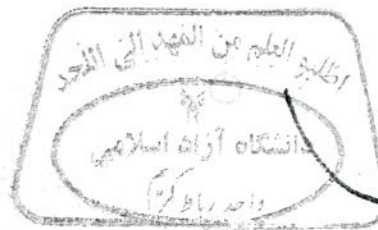 اطلبو العلم من المهد الی اللحد
دانشگاه آزاد اسلامی
واحد رباط کریم